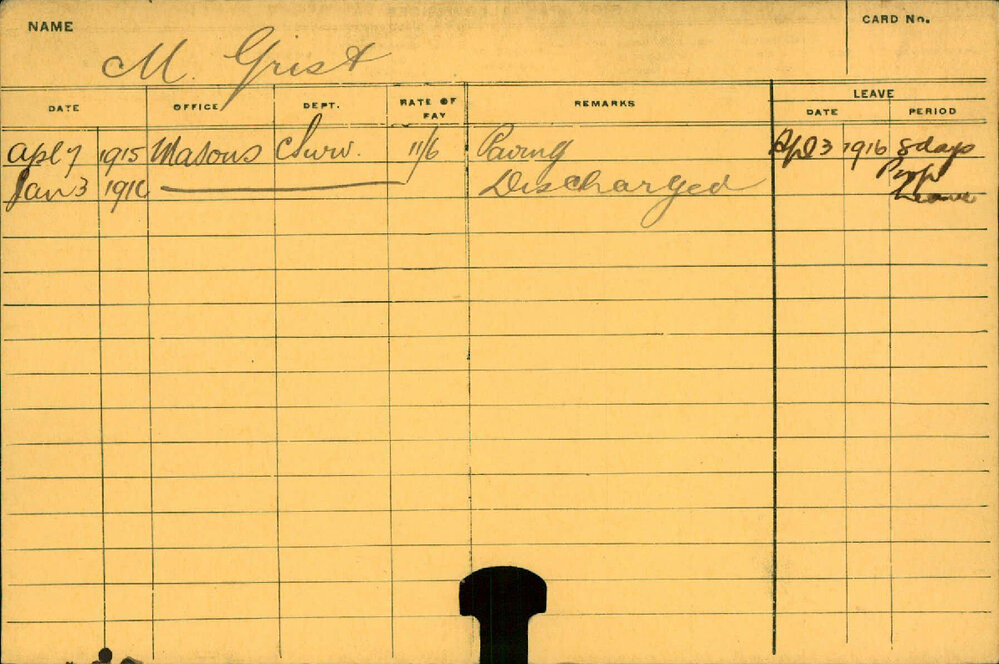 NAME M. Grist CARD No.
DATE OFFICE DEPT. RATE OF PAY REMARKS LEAVE DATE PERIOD
Apl 7 1915 Masons C Surv. 11/6 Paving Apl 3 1916 8 days
Jan 3 1916 Discharged Prop
Leave